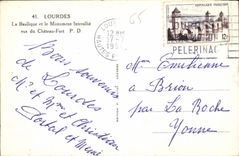 41. LOURDES
La Basilique et le Monument Interallié
vus du Château-Fort P. D
65
RÉPUBLIQUE FRANÇAISE
12F
PELERINAG
Bons souvenirs
de Lourdes
Mr et Mme et Christian
Mme Emilienne
à Brion
par La Roche
Yonne